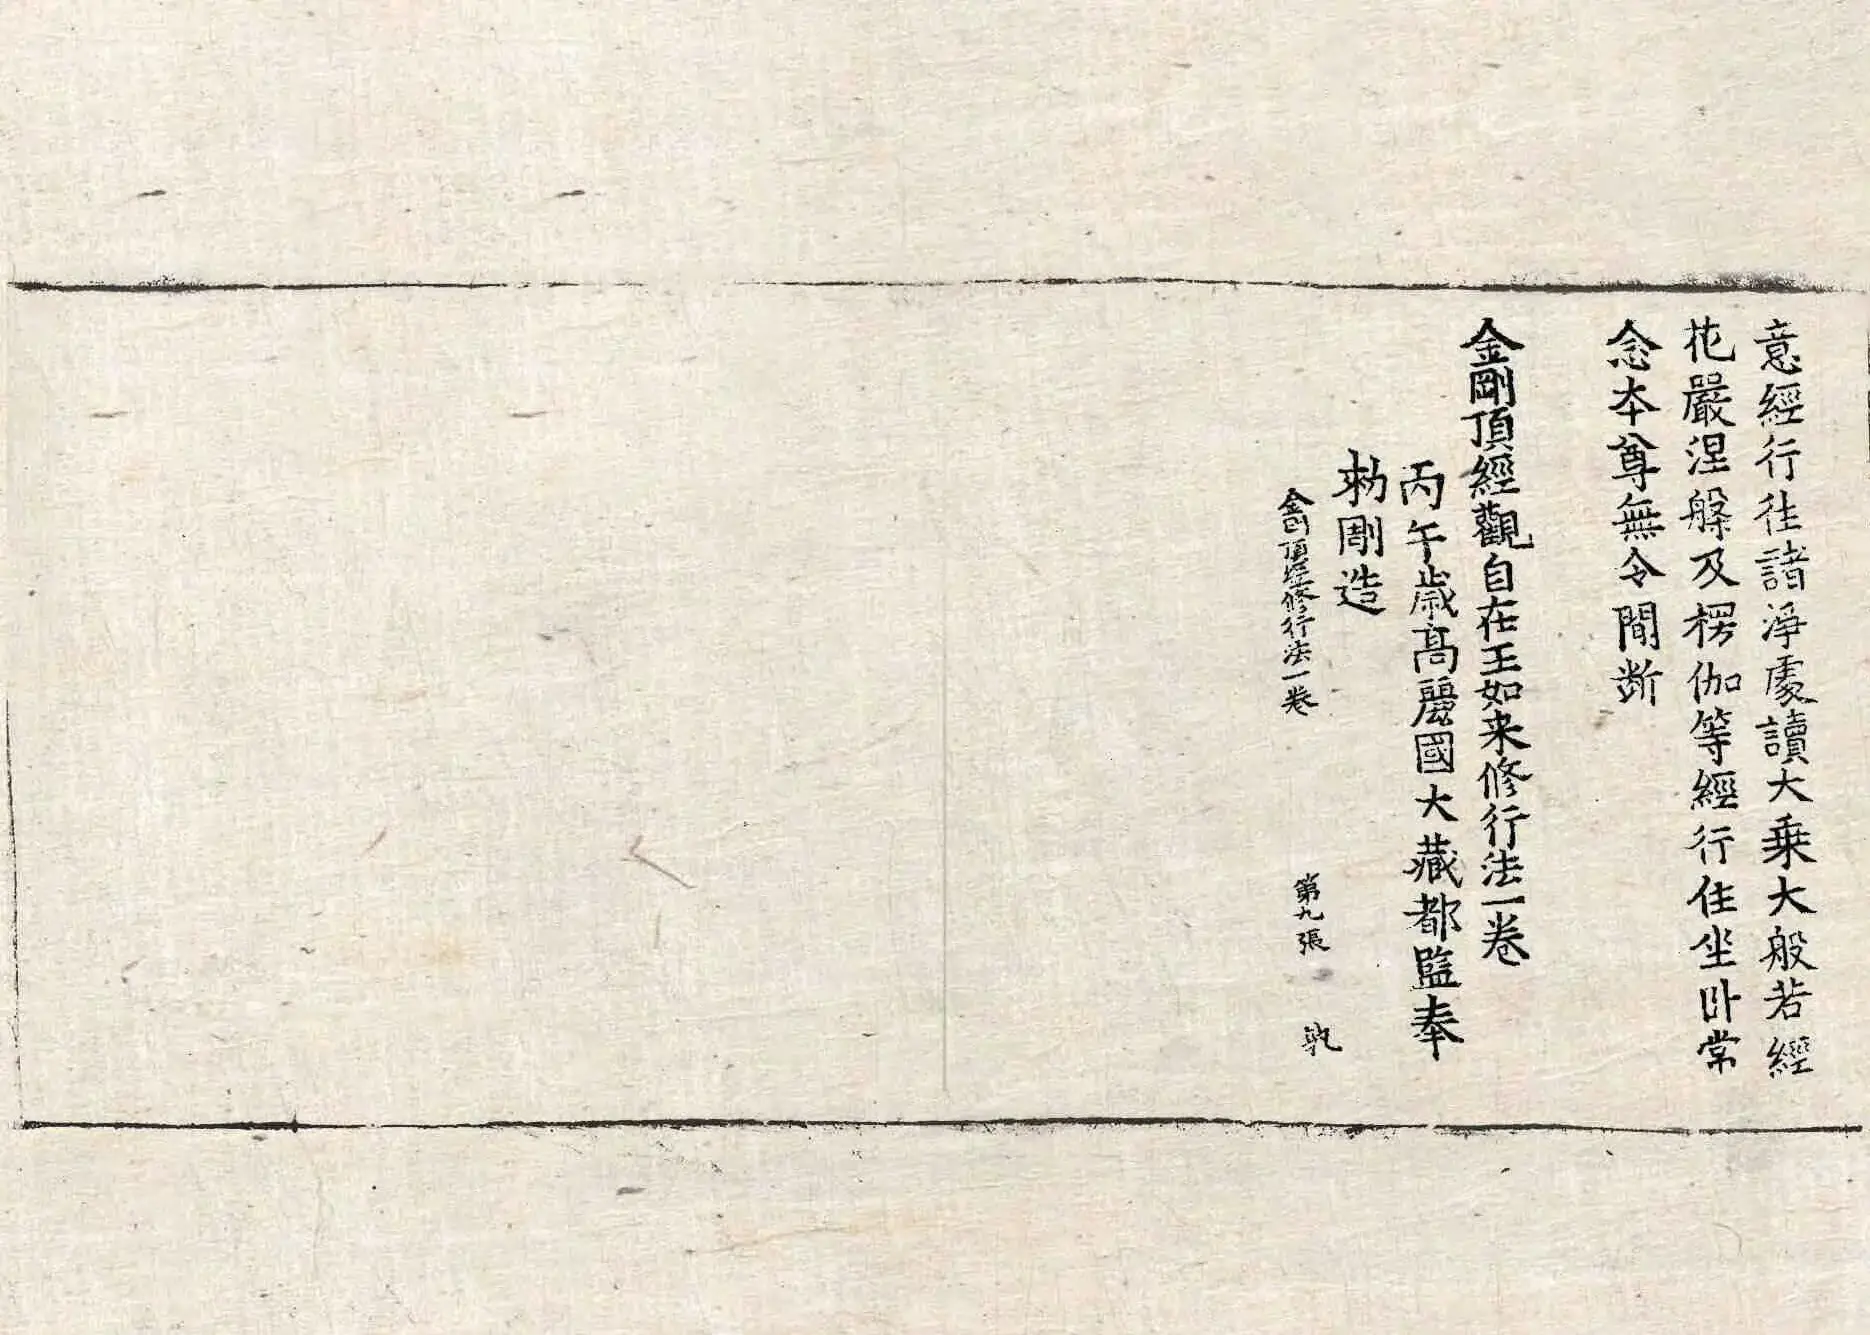 意經行往諸淨處讀大乗大般若經
花嚴涅槃及楞伽等經行住坐卧常
念本尊無令間斷
金剛頂經觀自在王如来修行法一卷
丙午歳髙麗國大藏都監奉
勑彫造
金剛頂經修行法一卷 第九張 執